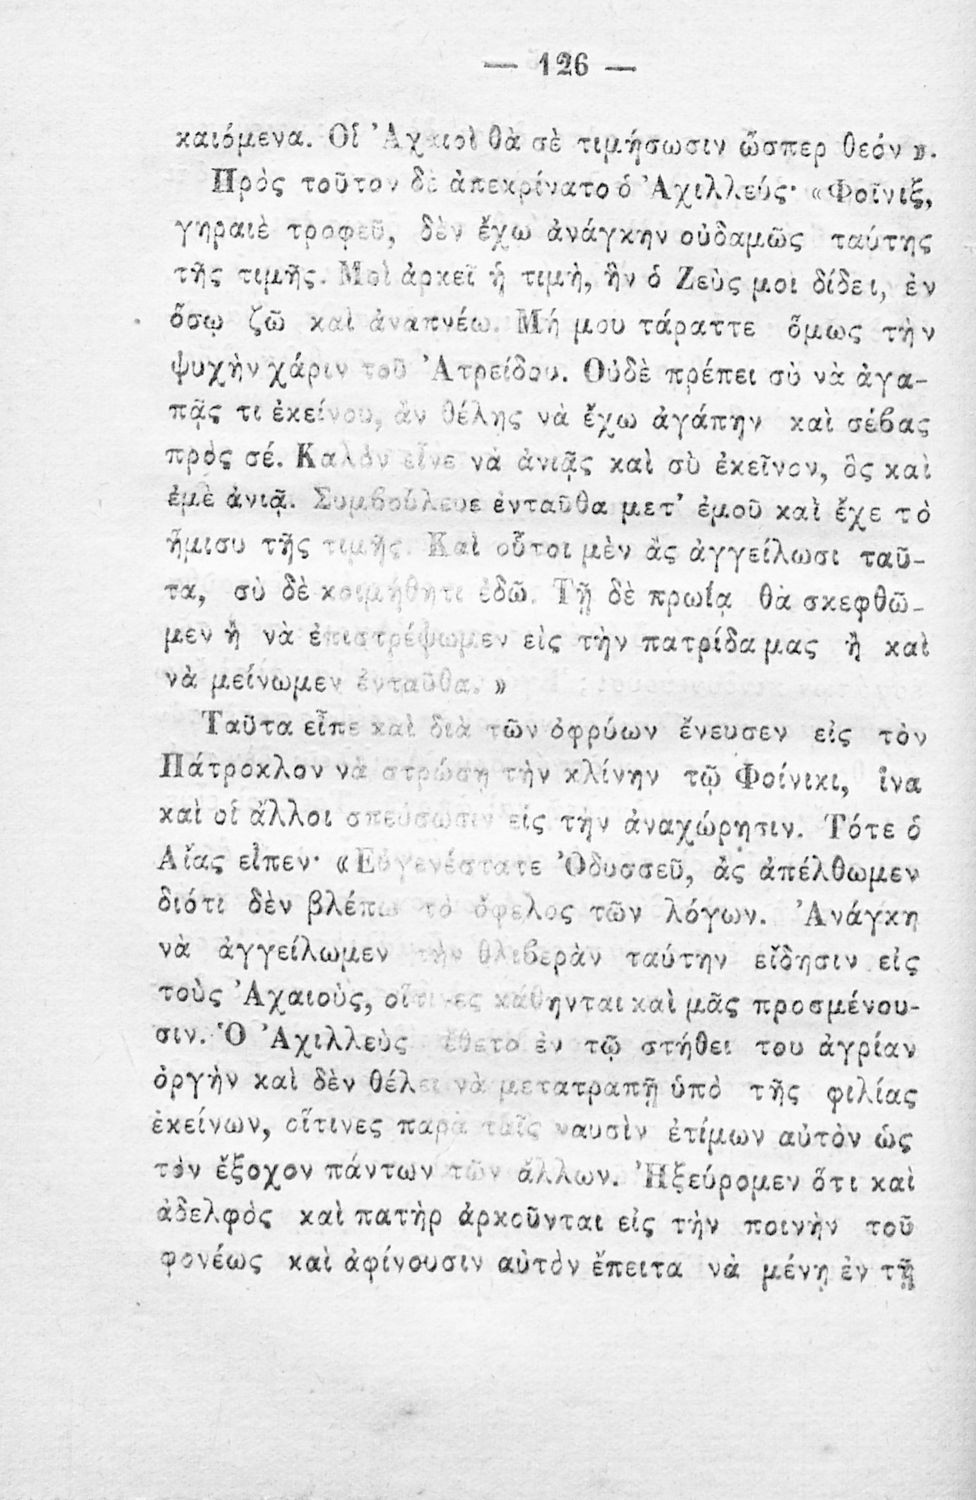 — 126 —
καιόμενα. Οἱ Ἀχαιοὶ θὰ σὲ τιμήσωσιν ὥσπερ θεόν ».
Πρὸς τοῦτον δὲ ἀπεκρίνατο ὁ Ἀχιλλεύς· «Φοῖνιξ,
γηραιὲ τροφεῦ, δὲν ἔχω ἀνάγκην οὐδαμῶς ταύτης
τῆς τιμῆς. Μοὶ ἀρκεῖ ἡ τιμὴ, ἣν ὁ Ζεὺς μοι δίδει, ἐν
ὅσῳ ζῶ καὶ ἀναπνέω. Μή μου τάραττε ὅμως τὴν
ψυχὴν χάριν τοῦ Ἀτρείδου. Οὐδὲ πρέπει σὺ νὰ ἀγα-
πᾷς τι ἐκείνου, ἂν θέλῃς νὰ ἔχω ἀγάπην καὶ σέβας
πρὸς σέ. Καλὸν εἶνε νὰ ἀνιᾷς καὶ σὺ ἐκεῖνον, ὃς καὶ
ἐμὲ ἀνιᾷ. Συμβούλευε ἐνταῦθα μετ’ ἐμοῦ καὶ ἔχε τὸ
ἥμισυ τῆς τιμῆς. Καὶ οὗτοι μὲν ἂς ἀγγείλωσι ταῦ-
τα, σὺ δὲ κοιμήθητι ἐδῶ. Τῇ δὲ πρωΐᾳ θὰ σκεφθῶ-
μεν ἢ νὰ ἐπιστρέψωμεν εἰς τὴν πατρίδα μας ἢ καὶ
νὰ μείνωμεν ἐνταῦθα. »
Ταῦτα εἶπε καὶ διὰ τῶν ὀφρύων ἔνευσεν εἰς τὸν
Πάτροκλον νὰ στρώσῃ τὴν κλίνην τῷ Φοίνικι, ἵνα
καὶ οἱ ἄλλοι σπεύσωσιν εἰς τὴν ἀναχώρησιν. Τότε ὁ
Αἴας εἶπεν· «Εὐγενέστατε Ὀδυσσεῦ, ἂς ἀπέλθωμεν
διότι δὲν βλέπω τὸ ὄφελος τῶν λόγων. Ἀνάγκη
νὰ ἀγγείλωμεν τὴν θλιβερὰν ταύτην εἴδησιν εἰς
τοὺς Ἀχαιοὺς, οἵτινες κάθηνται καὶ μᾶς προσμένου-
σιν. Ὁ Ἀχιλλεὺς ἔθετο ἐν τῷ στήθει του ἀγρίαν
ὀργὴν καὶ δὲν θέλει νὰ μετατραπῇ ὑπὸ τῆς φιλίας
ἐκείνων, οἵτινες παρὰ ταῖς ναυσὶν ἐτίμων αὐτὸν ὡς
τὸν ἔξοχον πάντων τῶν ἄλλων. Ἠξεύρομεν ὅτι καὶ
ἀδελφὸς καὶ πατὴρ ἀρκοῦνται εἰς τὴν ποινὴν τοῦ
φονέως καὶ ἀφίνουσιν αὐτὸν ἔπειτα νὰ μένῃ ἐν τῇ